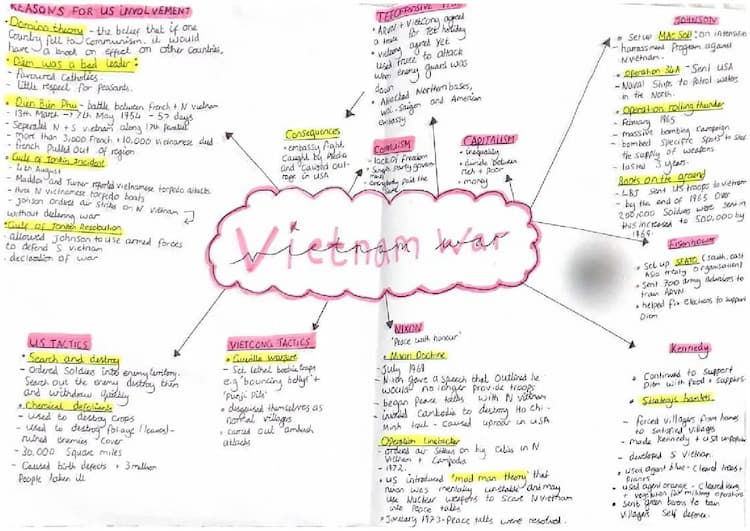 REASONS FOR US INVOLVEMENT
• Domino theory - the belief that if one
Country fell to Communism. it would
have a knock on effect on other countries.
• Diem was a bad leader:
- favoured Catholics.
- little respect for peasants.
• Dien Bien Phu - battle between French + N vietnam
- 13th March → 7th May 1954 - 57 days
- Seperated N + S vietnam along 17th Parallel
- more than 3,000 French + 10,000 vietnamese died
- french pulled out of region
• Gulf of Tonkin Incident
- 4th August
- Maddox and Turner reported vietnamese torpedo attacks
- three N vietnamese torpedo boats
- Johson orders air strikes on N vietnam
without declaring war
• Gulf of Tonkin Resolution
- allowed Johnson to use armed forces
to defend S vietnam
- declaration of war
TET OFFENSIVE
• ARVN + VietCong agreed
a truce for Tet holiday
• vietcong agred yet
used truce to attack
when enemy guard was
down
• Attacked Northern bases,
Saigon and American
embassy
Consequences
- embassy fight
caught by media
and caused out-
rage in USA
• lack of freedom
• Single party govern
CAPITALISM
• inequality
• divide between
rich + poor
• money
JOHNSON
• Set up MAC SOG: an intensive
- harassment Program against
N vietnam.
• Operation 34A - Sent USA
- Naval Ships to Patrol waters
in the North.
• Operation rolling thunder
- February 1965
- massive bombing campaign
- bombed Specific spots to
the supply of weapons
- lasted 3 years.
Boots on the ground
- LBJ sent US troops to vietnam
- by the end of 1965 over
200,000 Soldiers were sent in
this increased to 500,000 by
Vietnam War
Eisenhower
• Set up SEATO (South, east
Asia treaty organisation)
• Sent 700 army advisors to
train ARVN
• helped fix elections to support
Diem
US TACTICS
• Search and destroy
- ordered Soldiers into enemy territory.
Search out the enemy destroy them
and withdraw quickly
• Chemical defoliants
- used to destroy crops
- used to destroy foliage (leaves) -
ruined enemies cover
- 30,000 Square miles
- Caused birth defects + 3 million
People taken ill
VIETCONG TACTICS
• Guerilla warfare
- Set lethal booby traps
e.g 'bouncing bettys' +
'Punji Pits'
- disguised themselves as
normal villages
- carried out ambush
attacks
NIXON
'Peace with honour'
• Nixon Doctrine
- July 1969
- Nixon gave a speech that outlined he
would no longer Provide troops
- began Peace talks with N Vietnam
- invaded Cambodia to destroy Ho Chi-
Minh trail - caused uproar in USA
Operation Linebacker
- ordered air Strikes on in N
Vietnam + Cambodia
- 1972.
• US introduced 'mad man theory' that
nixon was mentally unstable and may
use Nuclear weapons to scare N vietnam
into Peace talks
• January 1973 - Peace talks were resolved.
Kennedy
• Continued to Support
Diem with food + Supplies.
• Strategic hamlets
- forced villages from homes
to Satisfied villages
- made Kennedy + USA unpopular
- developed S Vietnam.
• used agent blue - Cleared trees +
Plants
• used agent orange - Cleared
+ vegetation for military operations
• sent green berets to train
villages self defence.